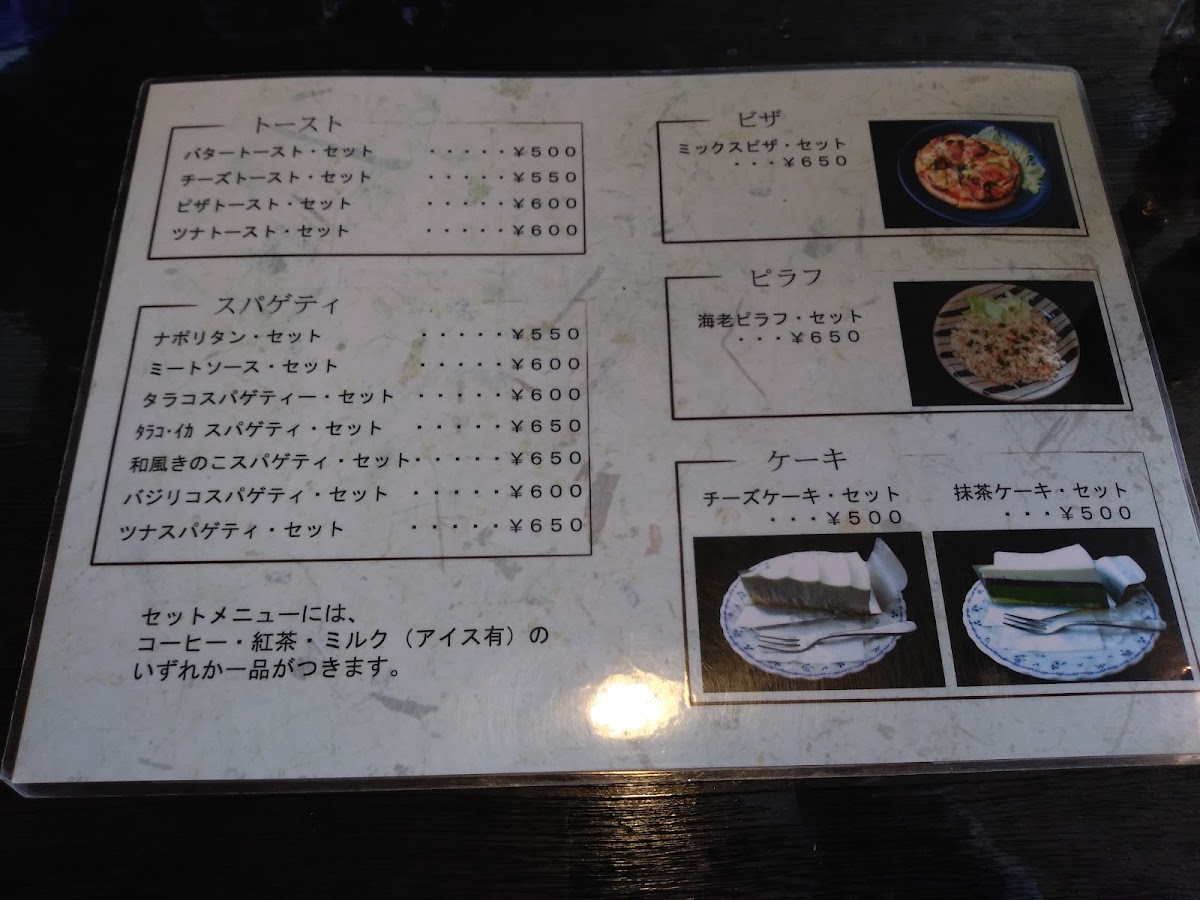 トースト
バタートースト・セット ・・・・・￥500
チーズトースト・セット ・・・・・￥550
ピザトースト・セット ・・・・・￥600
ツナトースト・セット ・・・・・￥600
スパゲティ
ナポリタン・セット ・・・・・￥550
ミートソース・セット ・・・・・￥600
タラコスパゲティー・セット ・・・・・￥600
ﾀﾗｺ・ｲｶ スパゲティ・セット ・・・・・￥650
和風きのこスパゲティ・セット・・・・・￥650
バジリコスパゲティ・セット ・・・・・￥600
ツナスパゲティ・セット ・・・・・￥650
セットメニューには、
コーヒー・紅茶・ミルク（アイス有）の
いずれか一品がつきます。
ピザ
ミックスピザ・セット
・・・￥650
ピラフ
海老ピラフ・セット
・・・￥650
ケーキ
チーズケーキ・セット
・・・￥500
抹茶ケーキ・セット
・・・￥500